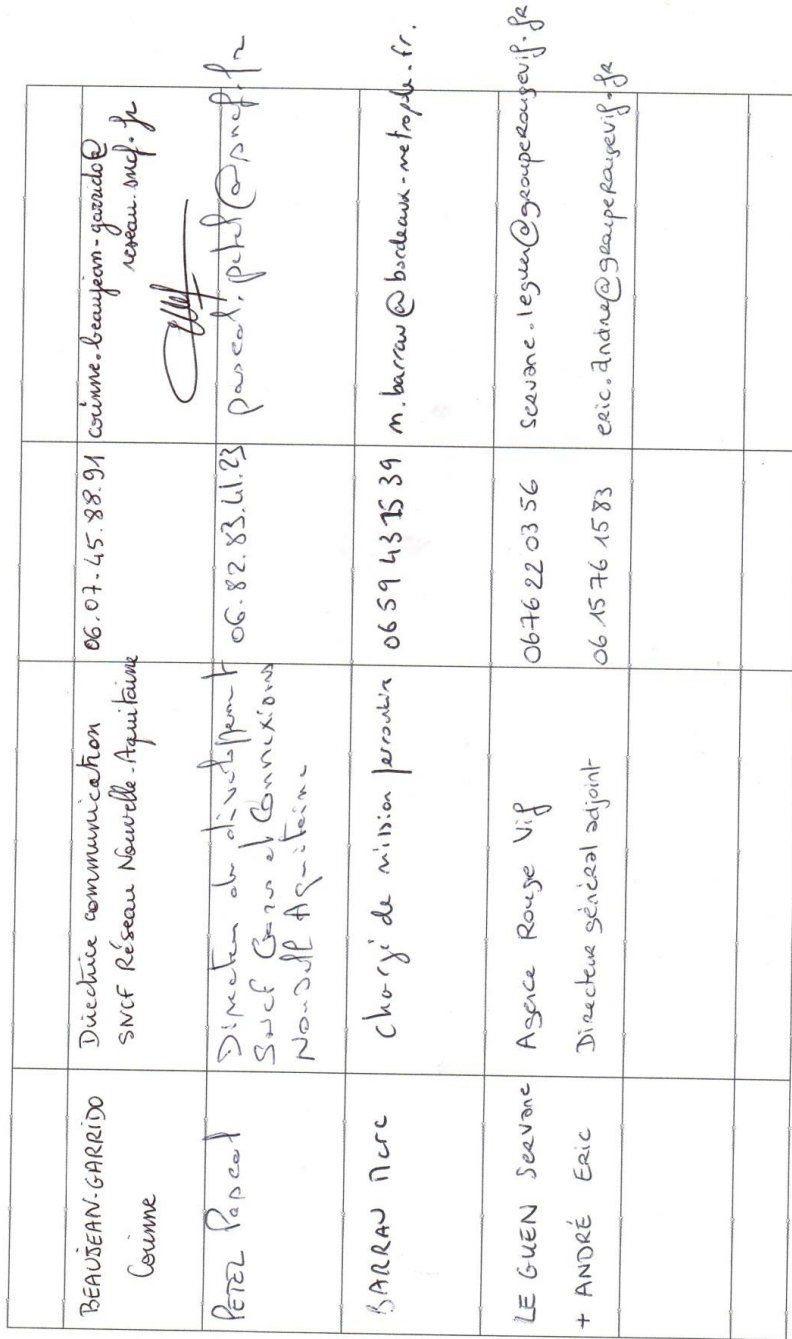 BEAUJEAN-GARRIDO
Corinne
Directrice communication
SNCF Réseau Nouvelle-Aquitaine
06.07.45.88.91
corinne.beaujean-garrido@
reseau.sncf.fr
PETEL Pascal
Directeur du développement
SNCF Gares et Connexions
Nouvelle Aquitaine
06.82.83.41.23
pascal.petel@sncf.fr
BARRAU Marc
chargé de mission ferroviaire
06 59 43 15 39
m.barrau@bordeaux-metropole.fr.
LE GUEN Servane
+ ANDRÉ Eric
Agence Rouge Vif
Directeur général adjoint
0676 22 03 56
06 15 76 15 83
servane.leguen@grouperougevif.fr
eric.andre@grouperougevif.fr